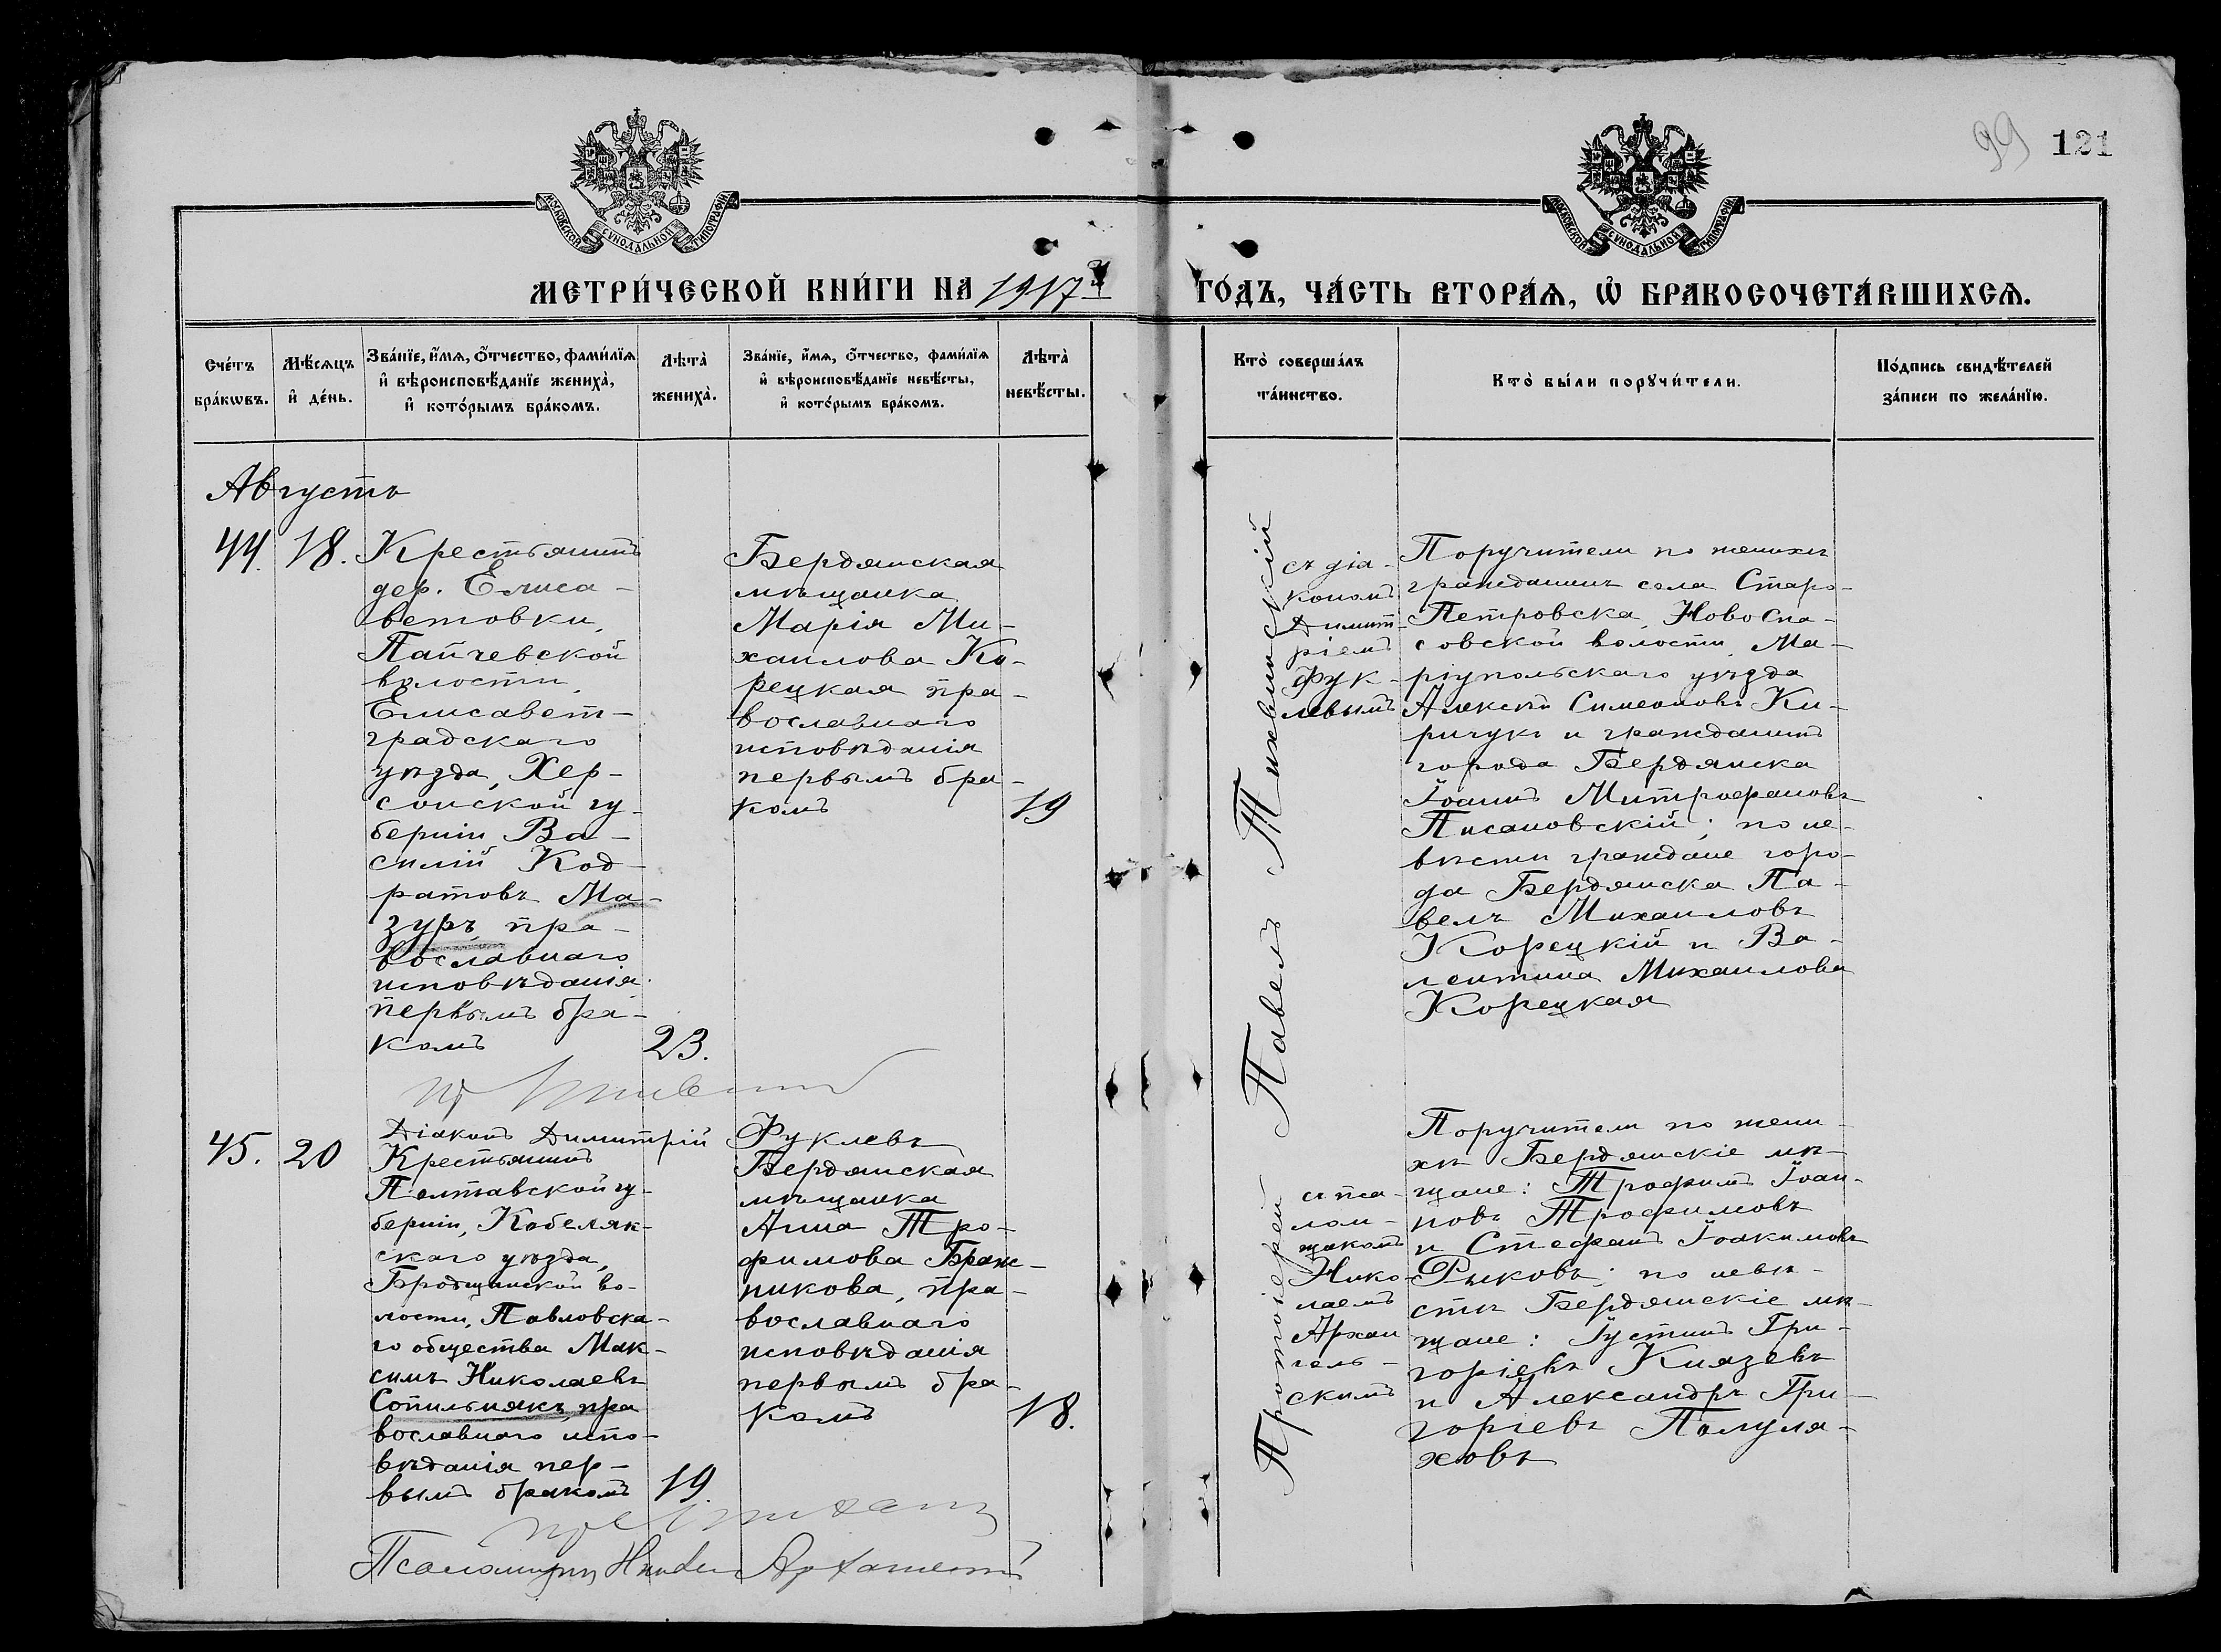 99 121
МОСКОВСКОЙ СУНОДАЛЬНОЙ ТИПОГРАФІИ
МОСКОВСКОЙ СУНОДАЛЬНОЙ ТИПОГРАФІИ
МЕТРИ́ЧЕСКОЙ КНИ́ГИ НА 1917й ГО́ДЪ, ЧА́СТЬ ВТОРА́Ѧ, Ѡ҆ БРАКОСОЧЕТА́ВШИХСѦ.
Сче́тъ
бра́кωвъ.
Мѣ́сѧцъ
и҆ де́нь.
Зва́нїе, и҆́мѧ, ѻ҆́тчество, фами́лїѧ
и҆ вѣроисповѣ́данїе жениха̀,
и҆ кото́рымъ бра́комъ.
Лѣта̀
жениха̀.
Зва́нїе, и҆́мѧ, ѻ҆́тчество, фами́лїѧ
и҆ вѣроисповѣ́данїе невѣ́сты,
и҆ кото́рымъ бра́комъ.
Лѣта̀
невѣ́сты.
Кто̀ соверша́лъ
та́инство.
Кто̀ бы́ли порꙋчи́тели.
По́дпись свидѣ́телей
за́писи по жела́нїю.
Августъ
44. 18.
Крестьянинъ
дер. Елиса-
ветовки,
Панчевской
волости,
Елисавет-
градскаго
уѣзда, Хер-
сонской гу-
берніи Ва-
силій Код-
ратовъ Ма-
зуръ, пра-
вославнаго
исповѣданія
первымъ бра-
комъ
23.
Бердянская
мѣщанка
Марія Ми-
хаилова Ко-
рецкая пра-
вославнаго
исповѣданія
первымъ бра-
комъ
19
Протоіерей Павелъ Тихвинскій
съ діа-
кономъ
Димит-
ріемъ
Фук-
левымъ
Поручители по женихѣ
гражданинъ села Старо-
Петровска, НовоСпа-
совской волости, Ма-
ріупольскаго уѣзда
Алексѣй Симеоновъ Ки-
ричукъ и гражданинъ
города Бердянска
Іоаннъ Митрофановъ
Писановскій; по не-
вѣсти граждане горо-
да Бердянска Па-
велъ Михаиловъ
Корецкій и Ва-
лентина Михаилова
Корецкая
Діаконъ Димитрій Фуклевъ
45. 20
Крестьянинъ
Полтавской гу-
берніи, Кобеляк-
скаго уѣзда,
Бродщинской во-
лости, Павловска-
го общества Мак-
симъ Николаевъ
Сопильнякъ, пра
вославнаго испо-
вѣданія пер-
вымъ бракомъ
19.
Бердянская
мѣщанка
Анна Тро-
фимова Браж-
никова, пра-
вославнаго
исповѣданія
первымъ бра-
комъ
18.
съ пса-
лом-
щикомъ
Нико-
лаемъ
Архан
гель-
скимъ
Поручители по жени-
хѣ Бердянскіе мѣ-
щане: Трофимъ Іоан-
новъ Трофимовъ
и Стефанъ Іоакимовъ
Рыковъ; по невѣ-
стѣ Бердянскіе мѣ-
щане: Іустинъ Гри-
горіевъ Князевъ
и Александръ Гри-
горіевъ Полуля-
ховъ